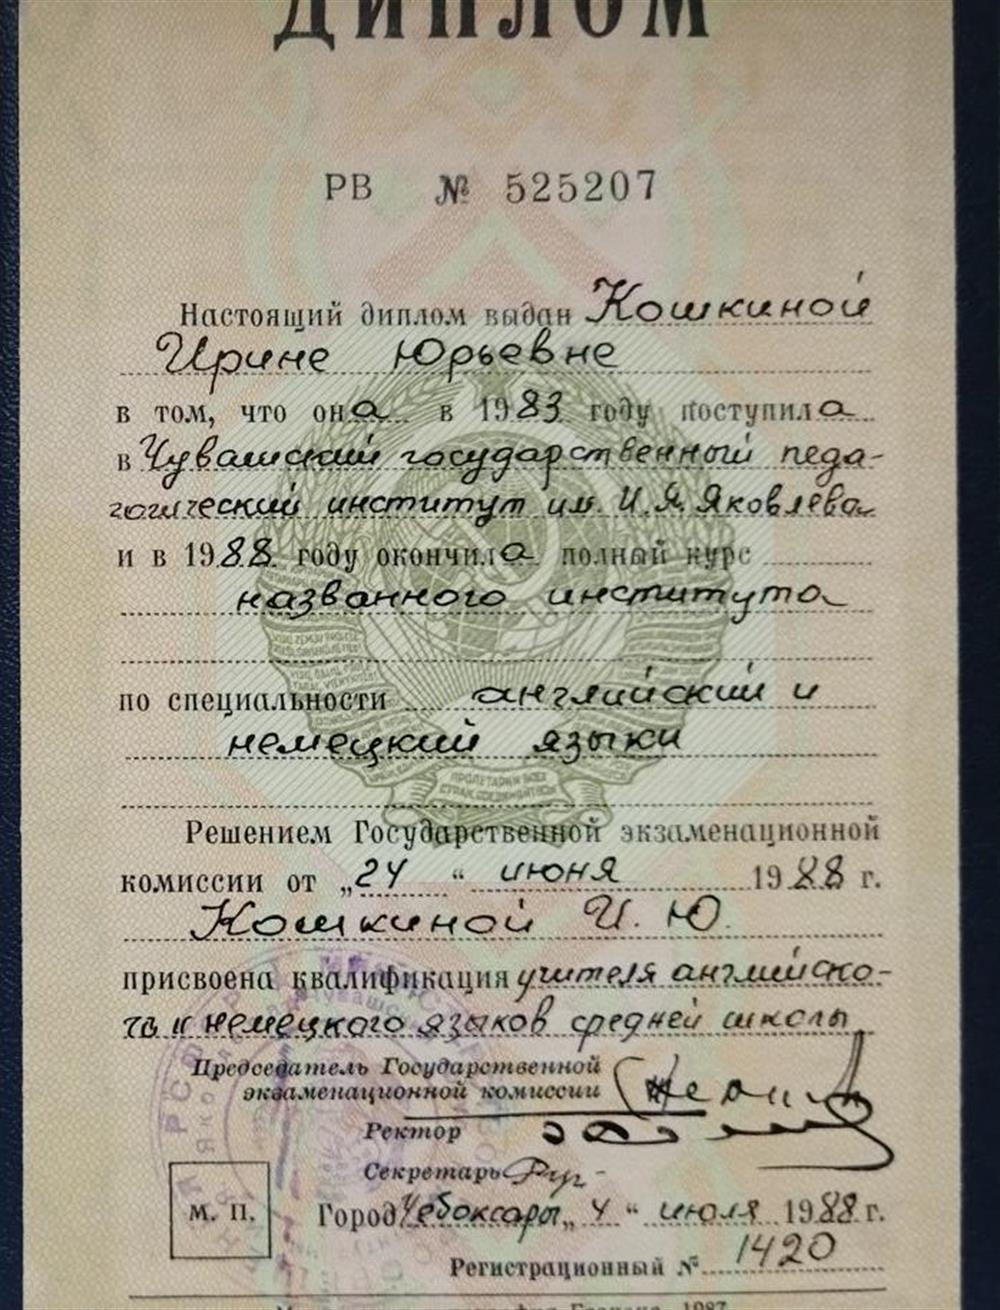 ДИПЛОМ
РВ № 525207
Настоящий диплом выдан Кошкиной
Ирине Юрьевне
в том, что она в 1983 году поступила
в Чувашский государственный педа-
гогический институт им. И.Я. Яковлева
и в 1988 году окончила полный курс
названного института
по специальности английский и
немецкий языки
Решением Государственной экзаменационной
комиссии от „24“ июня 1988 г.
Кошкиной И. Ю.
присвоена квалификация учителя английско-
го и немецкого языков средней школы
Председатель Государственной
экзаменационной комиссии
Ректор
Секретарь
М. П.
Город Чебоксары „4“ июля 1988 г.
Регистрационный № 1420
1987